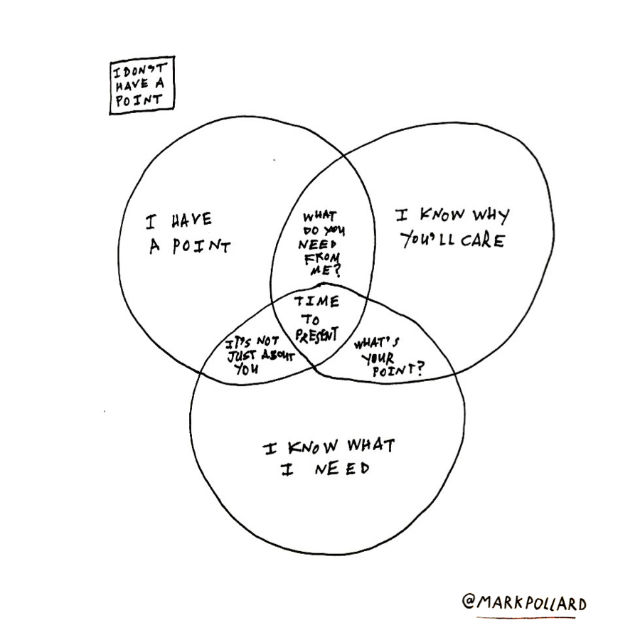 I DON'T
HAVE A
POINT
I HAVE
A POINT
WHAT
DO YOU
NEED
FROM
ME?
I KNOW WHY
YOU'LL CARE
TIME
TO
PRESENT
IT'S NOT
JUST ABOUT
YOU
WHAT'S
YOUR
POINT?
I KNOW WHAT
I NEED
@MARKPOLLARD